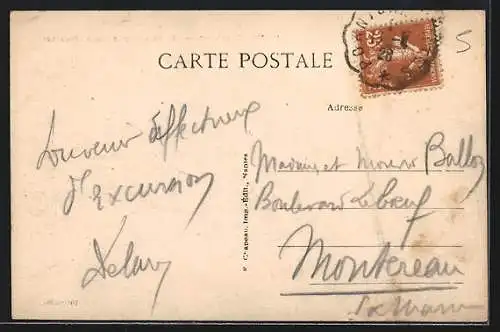 CARTE POSTALE
5
Adresse
Souvenir affectueux
d'Excursion
Delaury
F. Chapeau, Imp.-Édit., Nantes
Madame et Monsr Balloy
Boulevard Leboeuf
Montereau